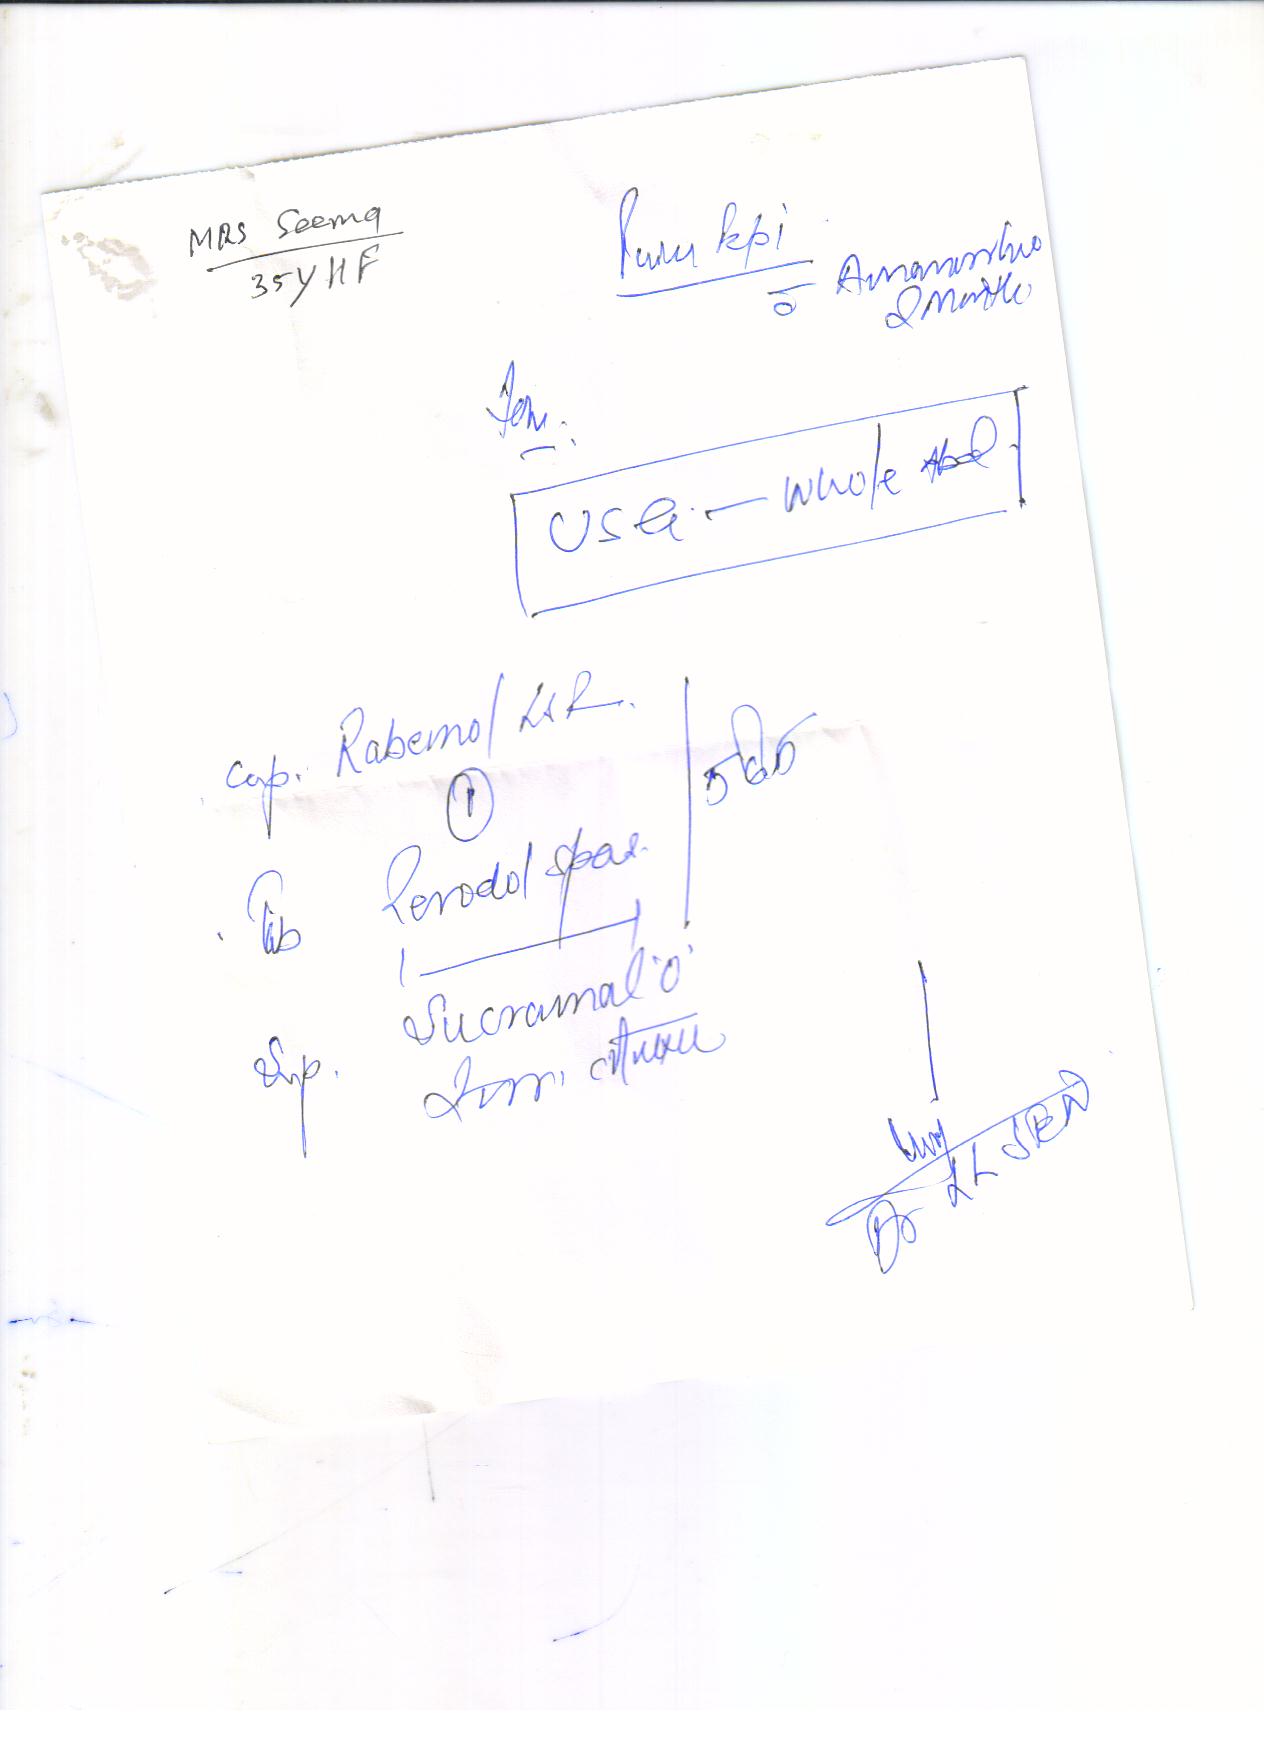 MRS Seema
35Y HF
Pain kpi
c̄ Amenorrhoea
2 Months
USG. — Whole Abd
Cap. Rabemol LSR.
1
Tab Renodol spas.
Syp. Sucramal 'O'
Dr LL SEN